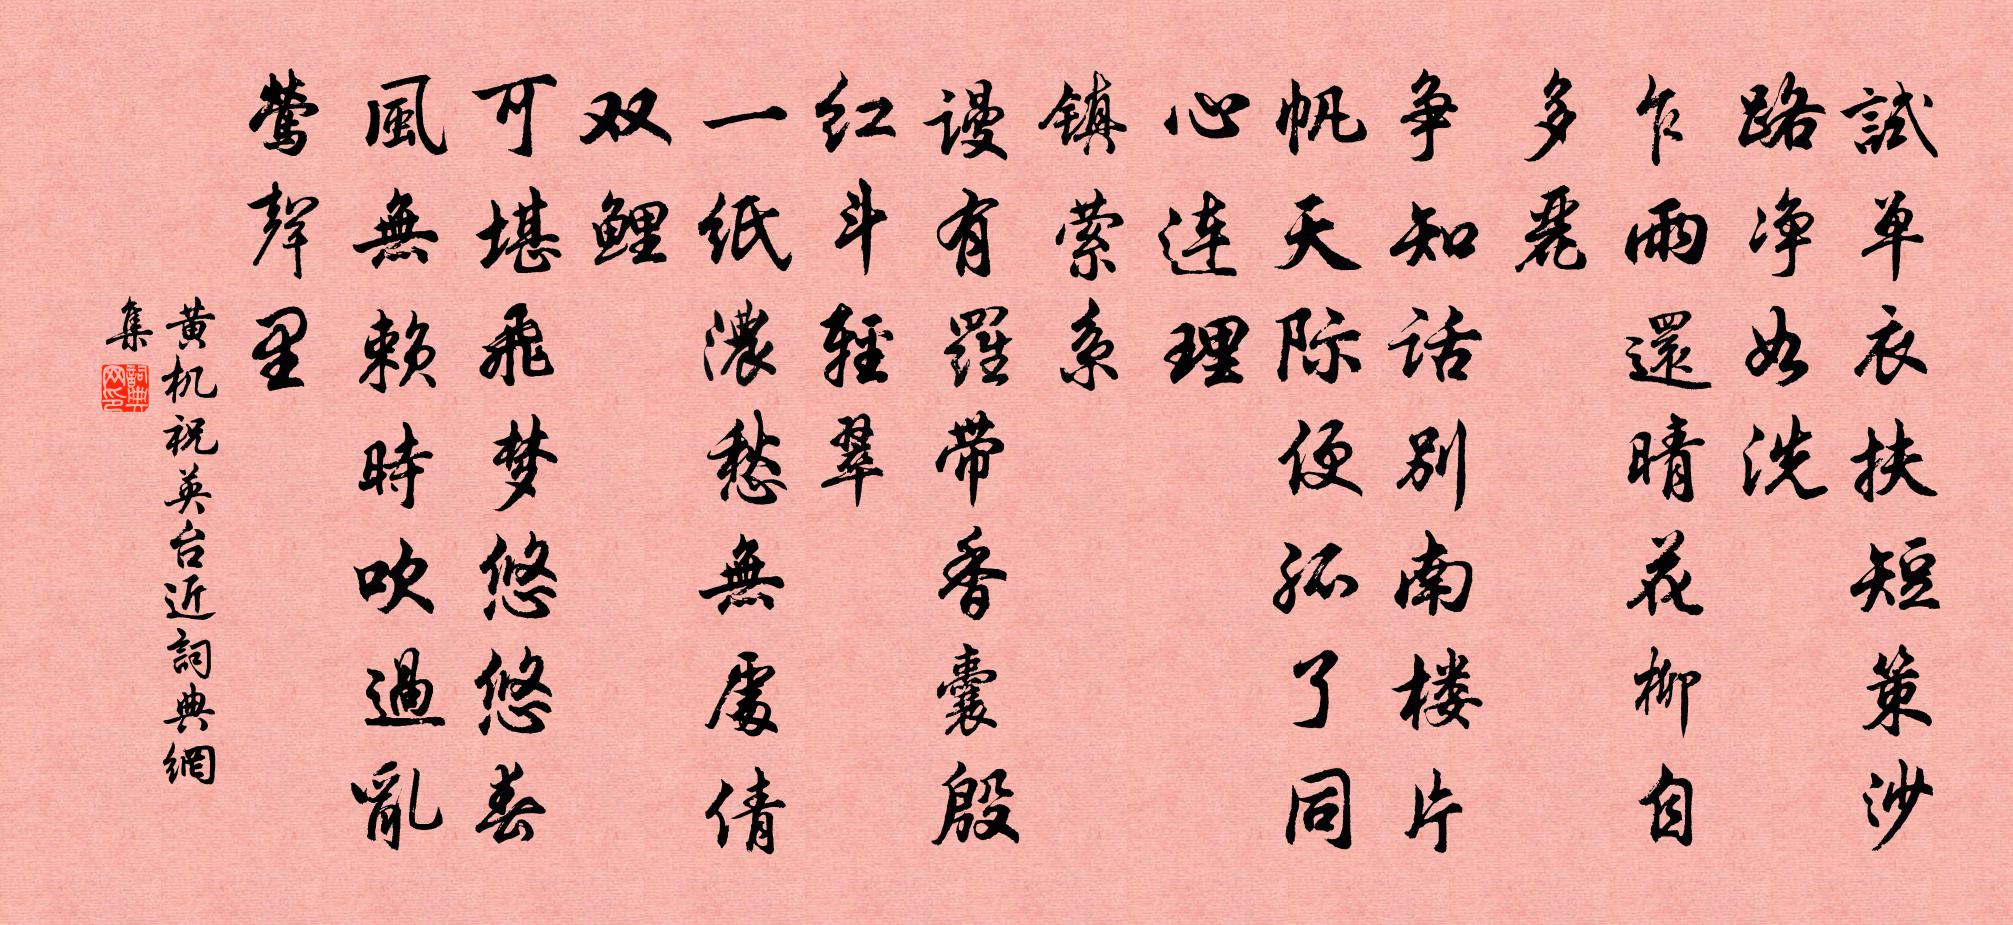 試单衣扶短策沙
路净如洗
乍雨還晴花柳自
多麗
争知话别南楼片
帆天际便孤了同
心连理
镇萦系
谩有羅带香囊殷
红斗輕翠
一纸濃愁無處倩
双鲤
可堪飛梦悠悠春
風無赖時吹過亂
鶯聲里
黄机祝英台近詞典網
集
詞典網印